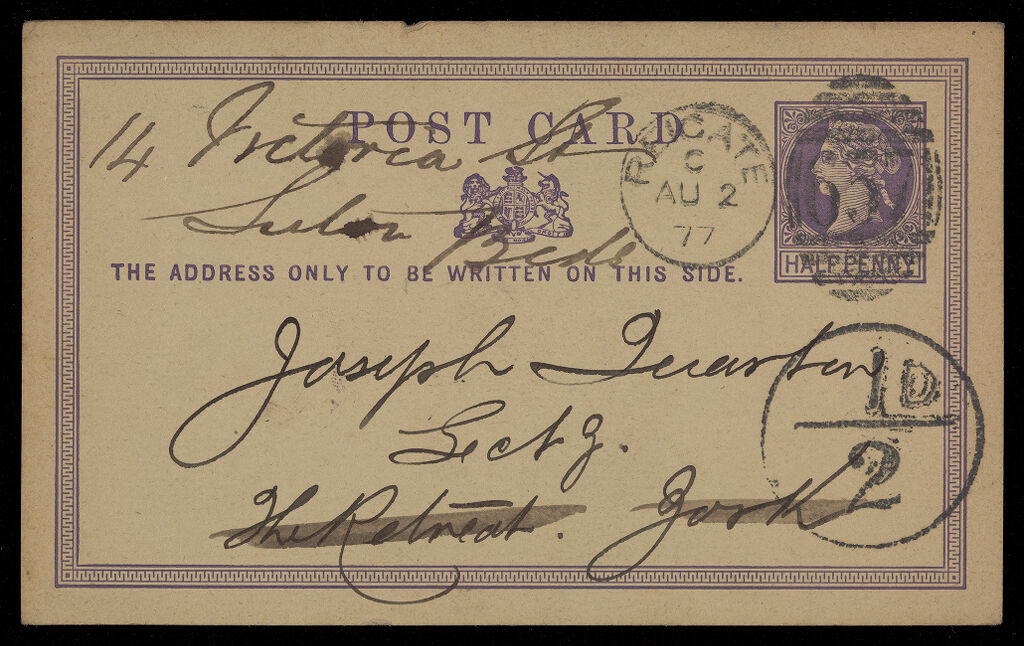 POST CARD
14 Victoria St
Luton Beds
THE ADDRESS ONLY TO BE WRITTEN ON THIS SIDE.
REIGATE
C
AU 2
77
HALFPENNY
Joseph Quarton
Secty.
The Retreat. York
1D
2